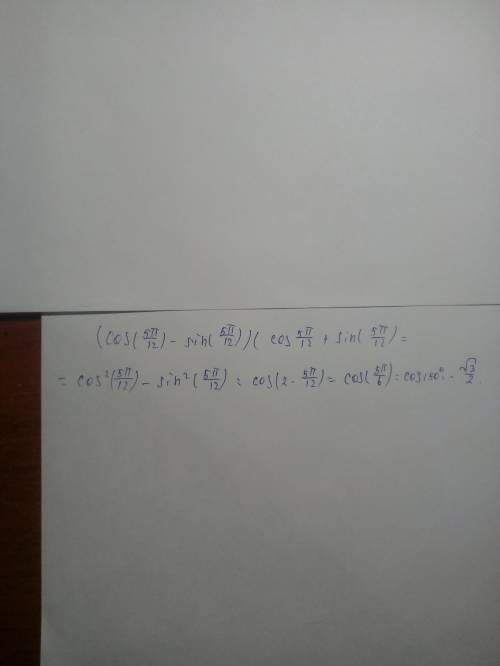 (cos(5π/12) - sin(5π/12))(cos 5π/12 + sin(5π/12) =
= cos²(5π/12) - sin²(5π/12) = cos(2 · 5π/12) = cos(5π/6) = cos150° = - √3/2.